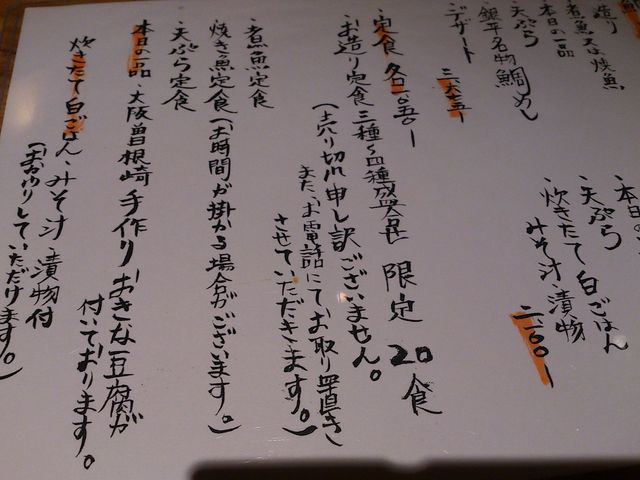 造り
煮魚又は焼魚
本日の一品
・天ぷら
・銀平名物鯛めし
・デザート
三六七五ー
・天ぷら
・炊きたて白ごはん
みそ汁・漬物
二一〇〇ー
・定食 各一〇五〇ー
・お造り定食 三種〜四種盛合せ 限定20食
(売り切れ申し訳ございません。
また、お電話にてお取り置き
させていただきます。)
・煮魚定食
・焼き魚定食(お時間が掛かる場合がございます。)
・天ぷら定食
本日の一品・大阪曽根崎手作りおきな豆腐が
付いております。
炊きたて白ごはん・みそ汁・漬物付
(おかわりしていただけます。)